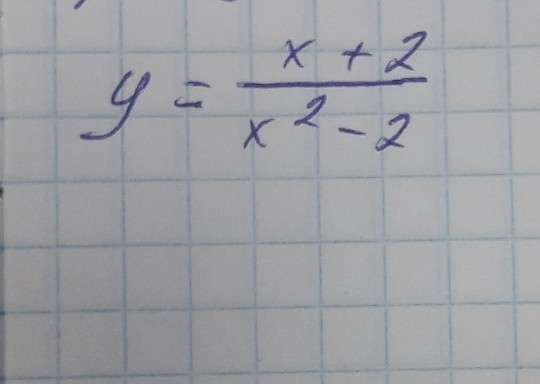 y = \frac{x + 2}{x^2 - 2}